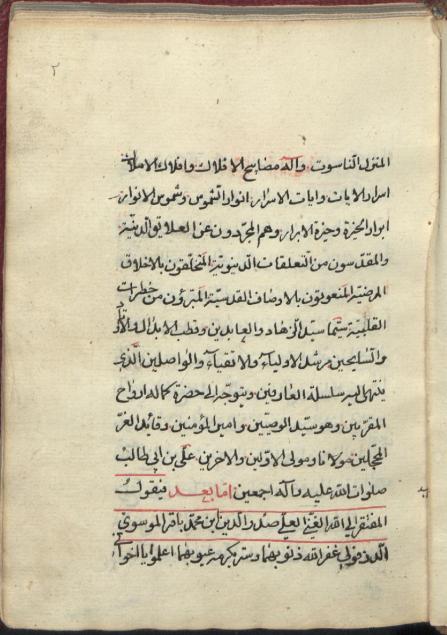 ٢
المتنزل الناسوت وآله مصابيح الافلاك وافلاك الاملاك
اسرار الايات وايات الاسرار انوار الشموس وشموس الانوار
ابرار الخيرة وخيرة الابرار وهم المجردون عن العلايق الدنية
والمقدسون من التعلقات الدنيوية المتخلقون بالاخلاق
المرضية المنعوتون بالاوصاف القدسية المبرؤن من خطرات
القلبية سيما سيد الزهاد والعابدين وقطب الابدال والاوتاد
والسايحين مرشد الاولياء والاتقياء والواصلين الذي
ينتهي اليه سلسلة العارفين ويتوجه الى حضرة كماله ارواح
المقربين وهو سيد الوصيين وامير المؤمنين وقائد الغر
المحجلين مولانا ومولى الاولين والاخرين علي بن ابي طالب
صلوات الله عليه وآله اجمعين اما بعد فيقول
المفتقر الى الله الغني العلي صدر الدين ابن محمد باقر الموسوي
الدزفولي غفر الله ذنوبهما وستر بكرمه عيوبهما اعلموا يا اخواني